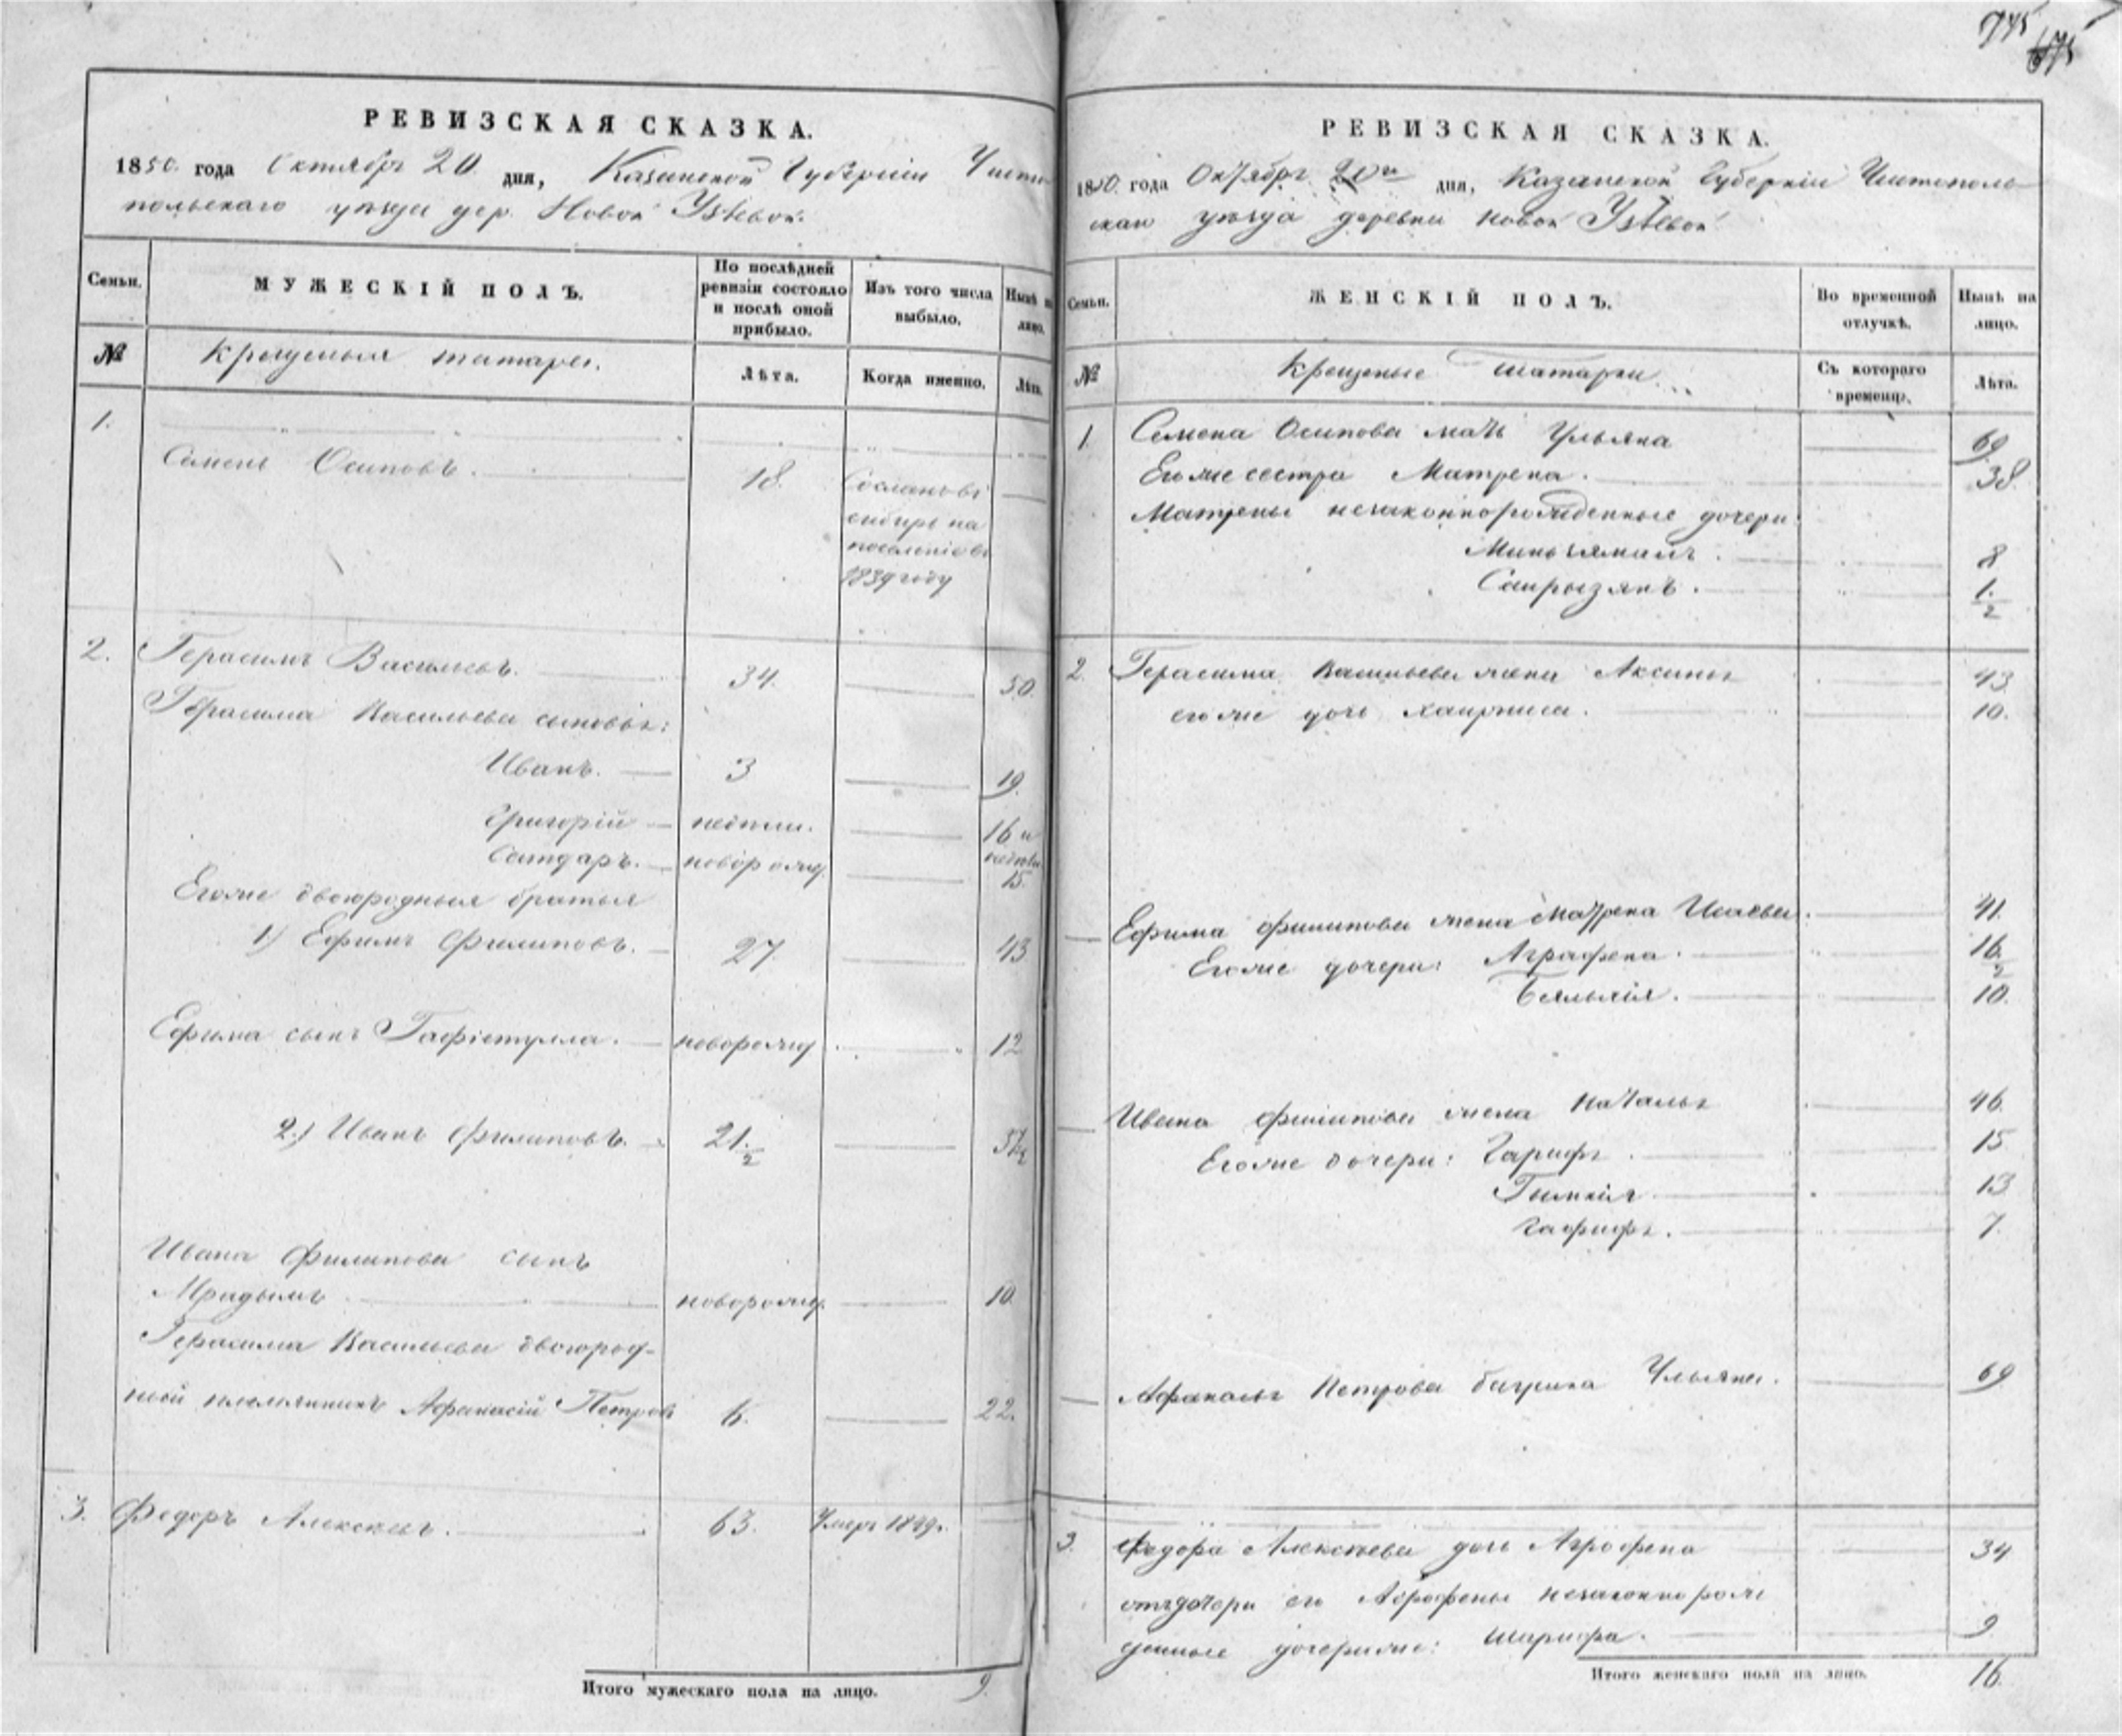 745
675
РЕВИЗСКАЯ СКАЗКА.
1850. года Октября 20 дня, Казанской Губерніи Чисто-
польскаго уѣзда дер. Новой
Семьи.
МУЖЕСКІЙ ПОЛЪ.
По послѣдней ревизіи состояло и послѣ оной прибыло.
Изъ того числа выбыло.
Нынѣ на лицо.
№
Крещеныя татары.
Лѣта.
Когда именно.
Лѣта.
1.
Семенъ Осиповъ. 18. Сосланъ въ
сибирь на
поселеніе въ
1839 году
2. Герасимъ Васильевъ. 34. 50.
Герасима Васильева сыновья:
Иванъ. 3 19.
Григорій недѣли. 16 и
Саидаръ. новорожд. 15.
Егоже двоюродныя братья
1) Ефимъ Филиповъ. 27. 43
Ефима сынъ Гафіетулла. новорожд 12
2.) Иванъ Филиповъ. 21 1/2
Ивана Филипова сынъ
новорожд. 10.
Герасима Васильева двоюрод-
ной племянникъ Афанасій Петровъ 6. 22.
3. Федоръ Алексеевъ. 63. Умеръ 1849.
Итого мужескаго пола на лицо. 9.
РЕВИЗСКАЯ СКАЗКА.
1850. года Октября 20го дня, Казанской Губерніи Чистополь-
скаго уѣзда деревни Новой
Семьи.
ЖЕНСКІЙ ПОЛЪ.
Во временной отлучкѣ.
Нынѣ на лицо.
№
Крещеные татарки
Съ котораго времени.
Лѣта.
1. Семена Осипова мать Ульяна 69
Егоже сестра Матрена. 38.
Матрены незаконнорожденные дочери:
Миньямалъ. 8
1/2
2. Герасима Васильева жена Аксинья 43.
егоже дочь Хаирниса. 10.
Ефима Филипова жена Матрена Исаева. 41.
Егоже дочери: Аграфена. 16 1/2
10.
Ивана Филипова жена Наталья 46.
Егоже дочери: Гарифа. 15
13
Гафифа. 7.
Афанасья Петрова бабушка Ульяна. 69
3. Федора Алексеева дочь Аграфена 34
отъ дочери его Аграфены незаконнорож
денные дочери же: Шарифа. 9
Итого женскаго пола на лицо. 16.